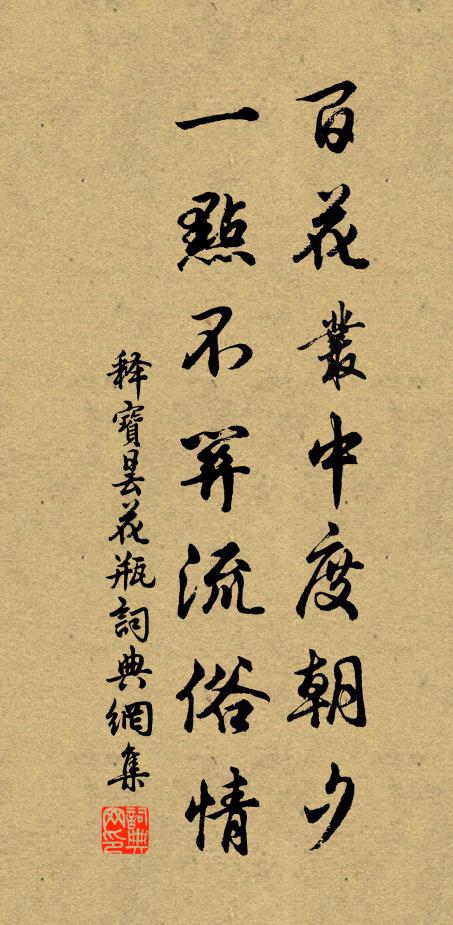 百花叢中度朝夕
一點不關流俗情
释寶曇花瓶詞典網集
詞典
网印